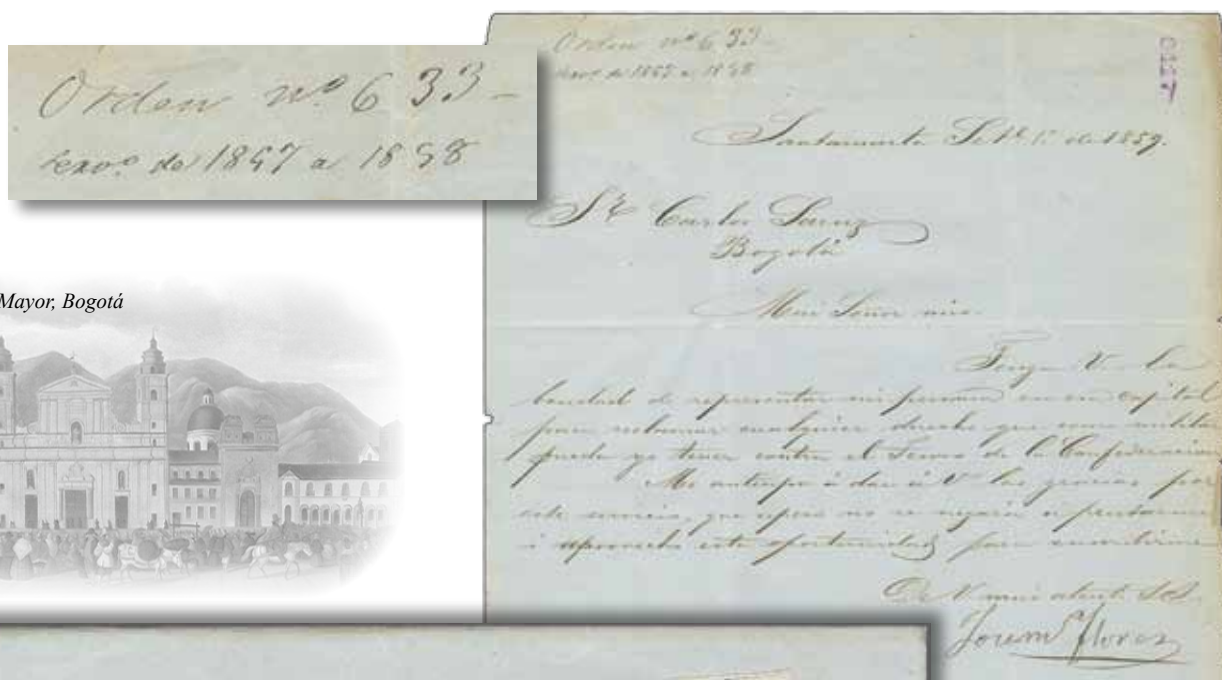 Orden nº 633-
de 1857 a 1858
Mayor, Bogotá
Orden nº 633-
de 1857 a 1858
Santamarta Set.e 1.º de 1859.
Sr Carlos Saenz
Bogotá
Mui Señor mio
Tenga V. la
bondad de representar mi persona en esa capital
para reclamar cualquier derecho que como militar
pueda yo tener contra el Tesoro de la Confederacion
Me anticipo á dar á V. las gracias por
este servicio, que espero no se negará a prestarme
i aprovecho esta oportunidad para suscribirme
De V. mui atento
Flores